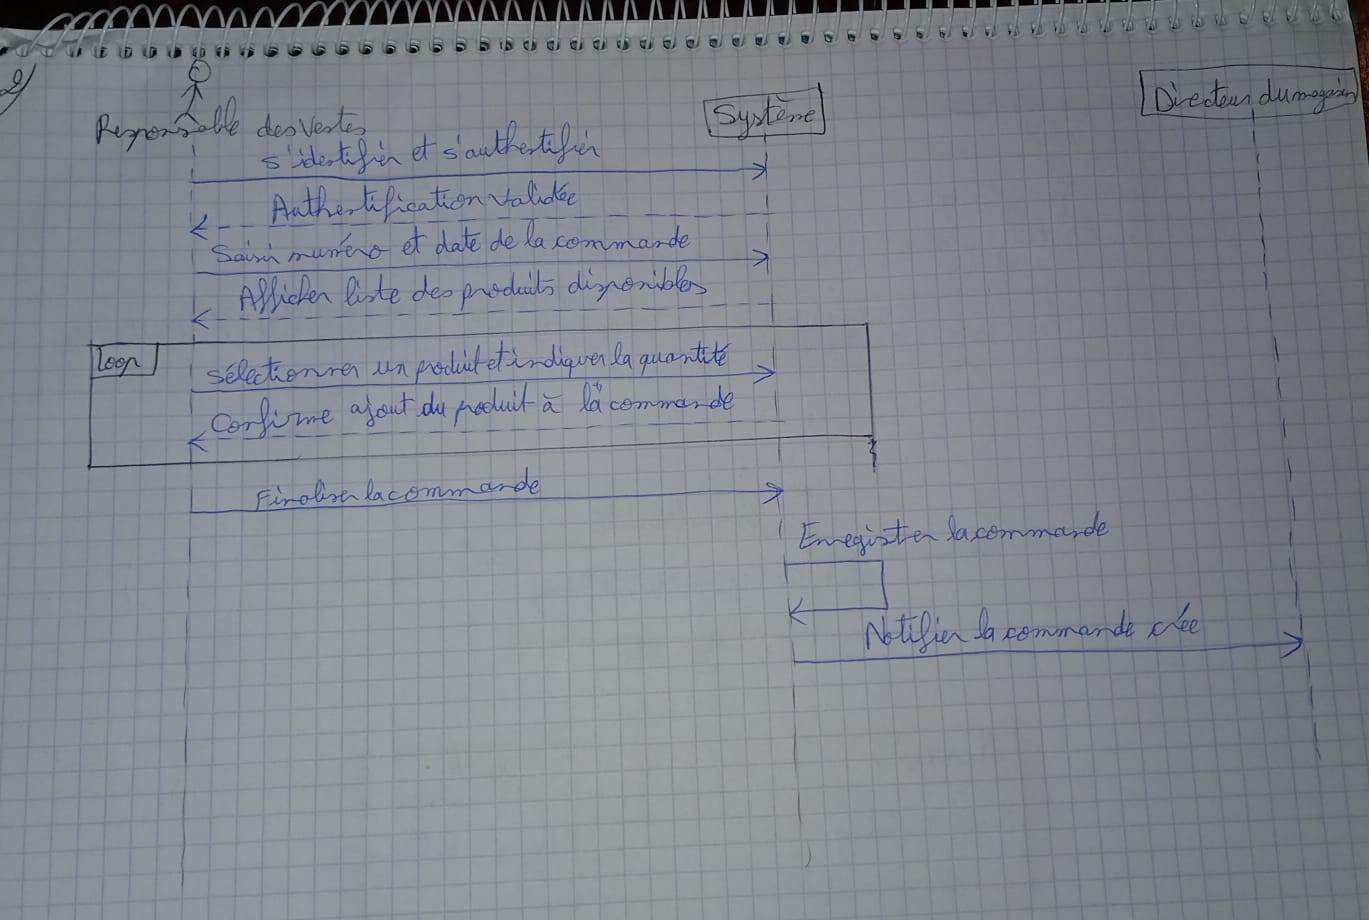 2)
Responsable des Ventes
Système
Directeur du magasin
s'identifier et s'authentifier
Authentification validée
Saisir numéro et date de la commande
Afficher liste des produits disponibles
loop
sélectionner un produit et indiquer la quantité
Confirme ajout du produit à la commande
Finaliser la commande
Enregister la commande
Notifier la commande crée